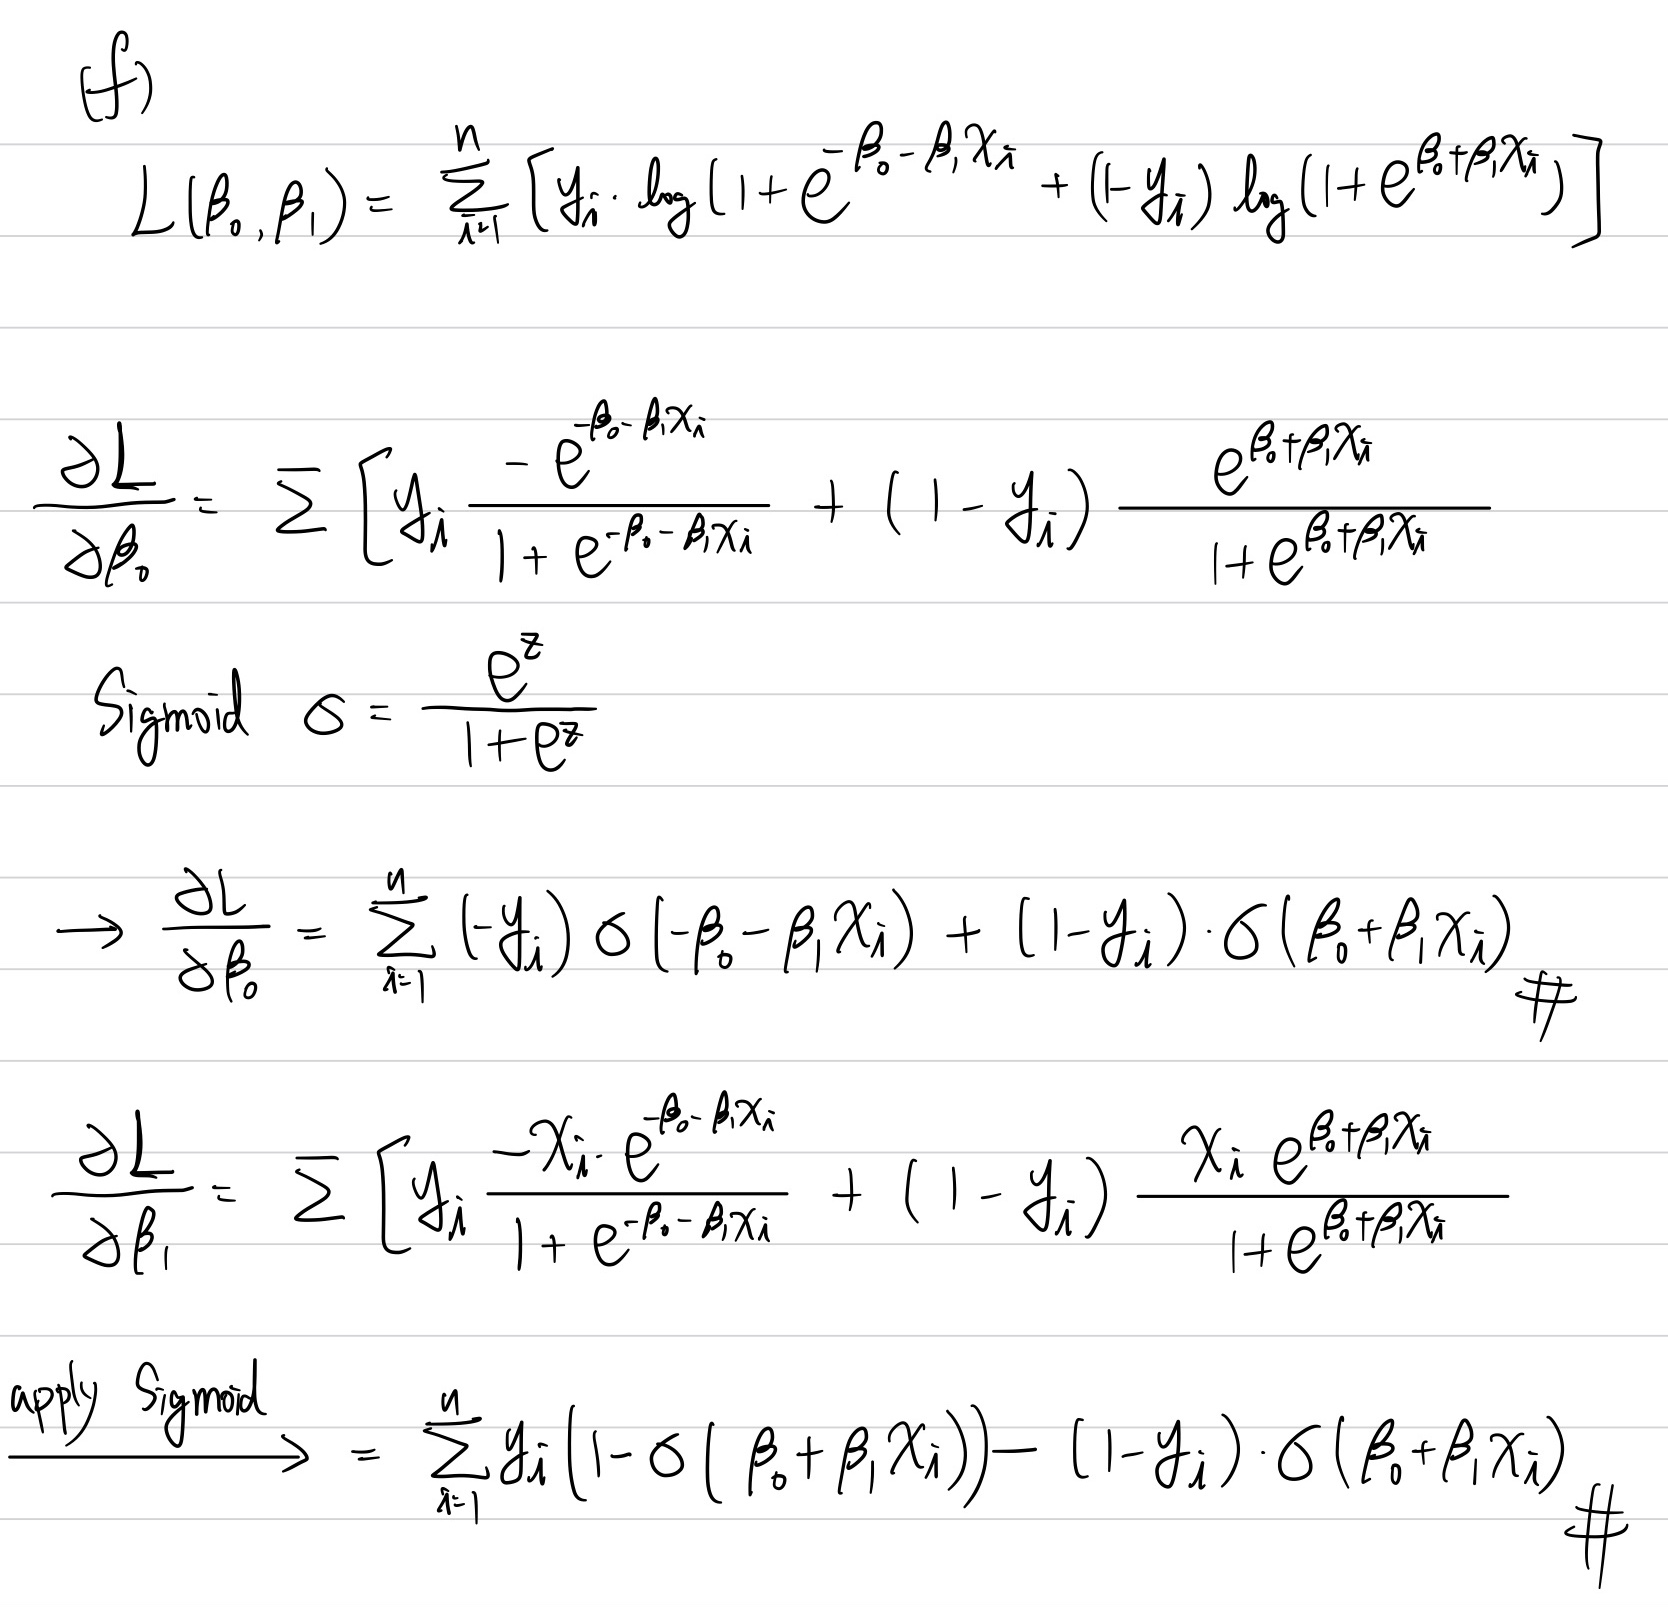 (f)
L(β₀, β₁) = Σ_{i=1}^{n} [y_i · log(1 + e^{-β₀ - β₁x_i} + (1 - y_i) log(1 + e^{β₀ + β₁x_i})]
∂L/∂β₀ = Σ [y_i \frac{-e^{-β₀ - β₁x_i}}{1 + e^{-β₀ - β₁x_i}} + (1 - y_i) \frac{e^{β₀ + β₁x_i}}{1 + e^{β₀ + β₁x_i}}
Sigmoid σ = \frac{e^z}{1 + e^z}
→ ∂L/∂β₀ = Σ_{i=1}^{n} (-y_i) σ(-β₀ - β₁x_i) + (1 - y_i) · σ(β₀ + β₁x_i) #
∂L/∂β₁ = Σ [y_i \frac{-x_i · e^{-β₀ - β₁x_i}}{1 + e^{-β₀ - β₁x_i}} + (1 - y_i) \frac{x_i e^{β₀ + β₁x_i}}{1 + e^{β₀ + β₁x_i}}
apply Sigmoid → = Σ_{i=1}^{n} y_i (1 - σ(β₀ + β₁x_i)) - (1 - y_i) · σ(β₀ + β₁x_i) #